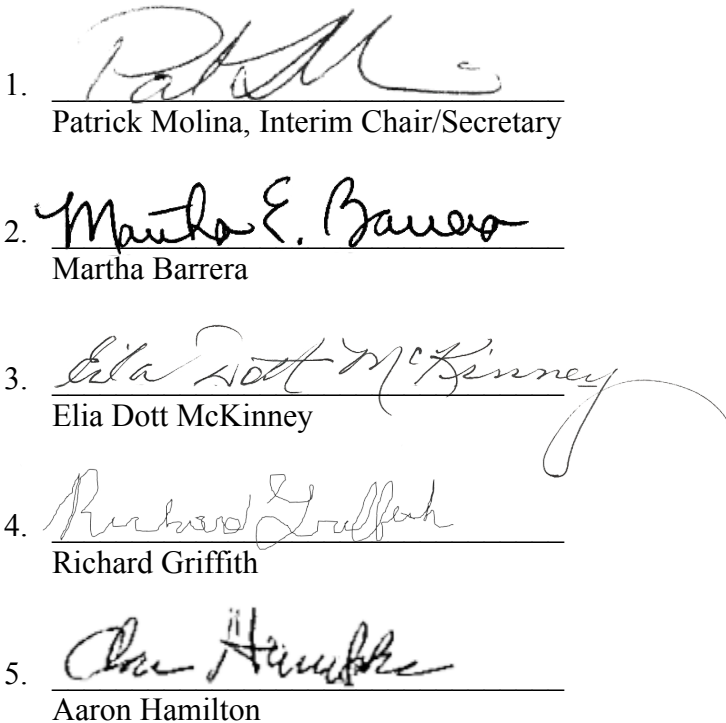 1. Pat M
Patrick Molina, Interim Chair/Secretary
2. Martha E. Barrera
Martha Barrera
3. Elia Dott McKinney
Elia Dott McKinney
4. Richard Griffith
Richard Griffith
5.
Aaron Hamilton